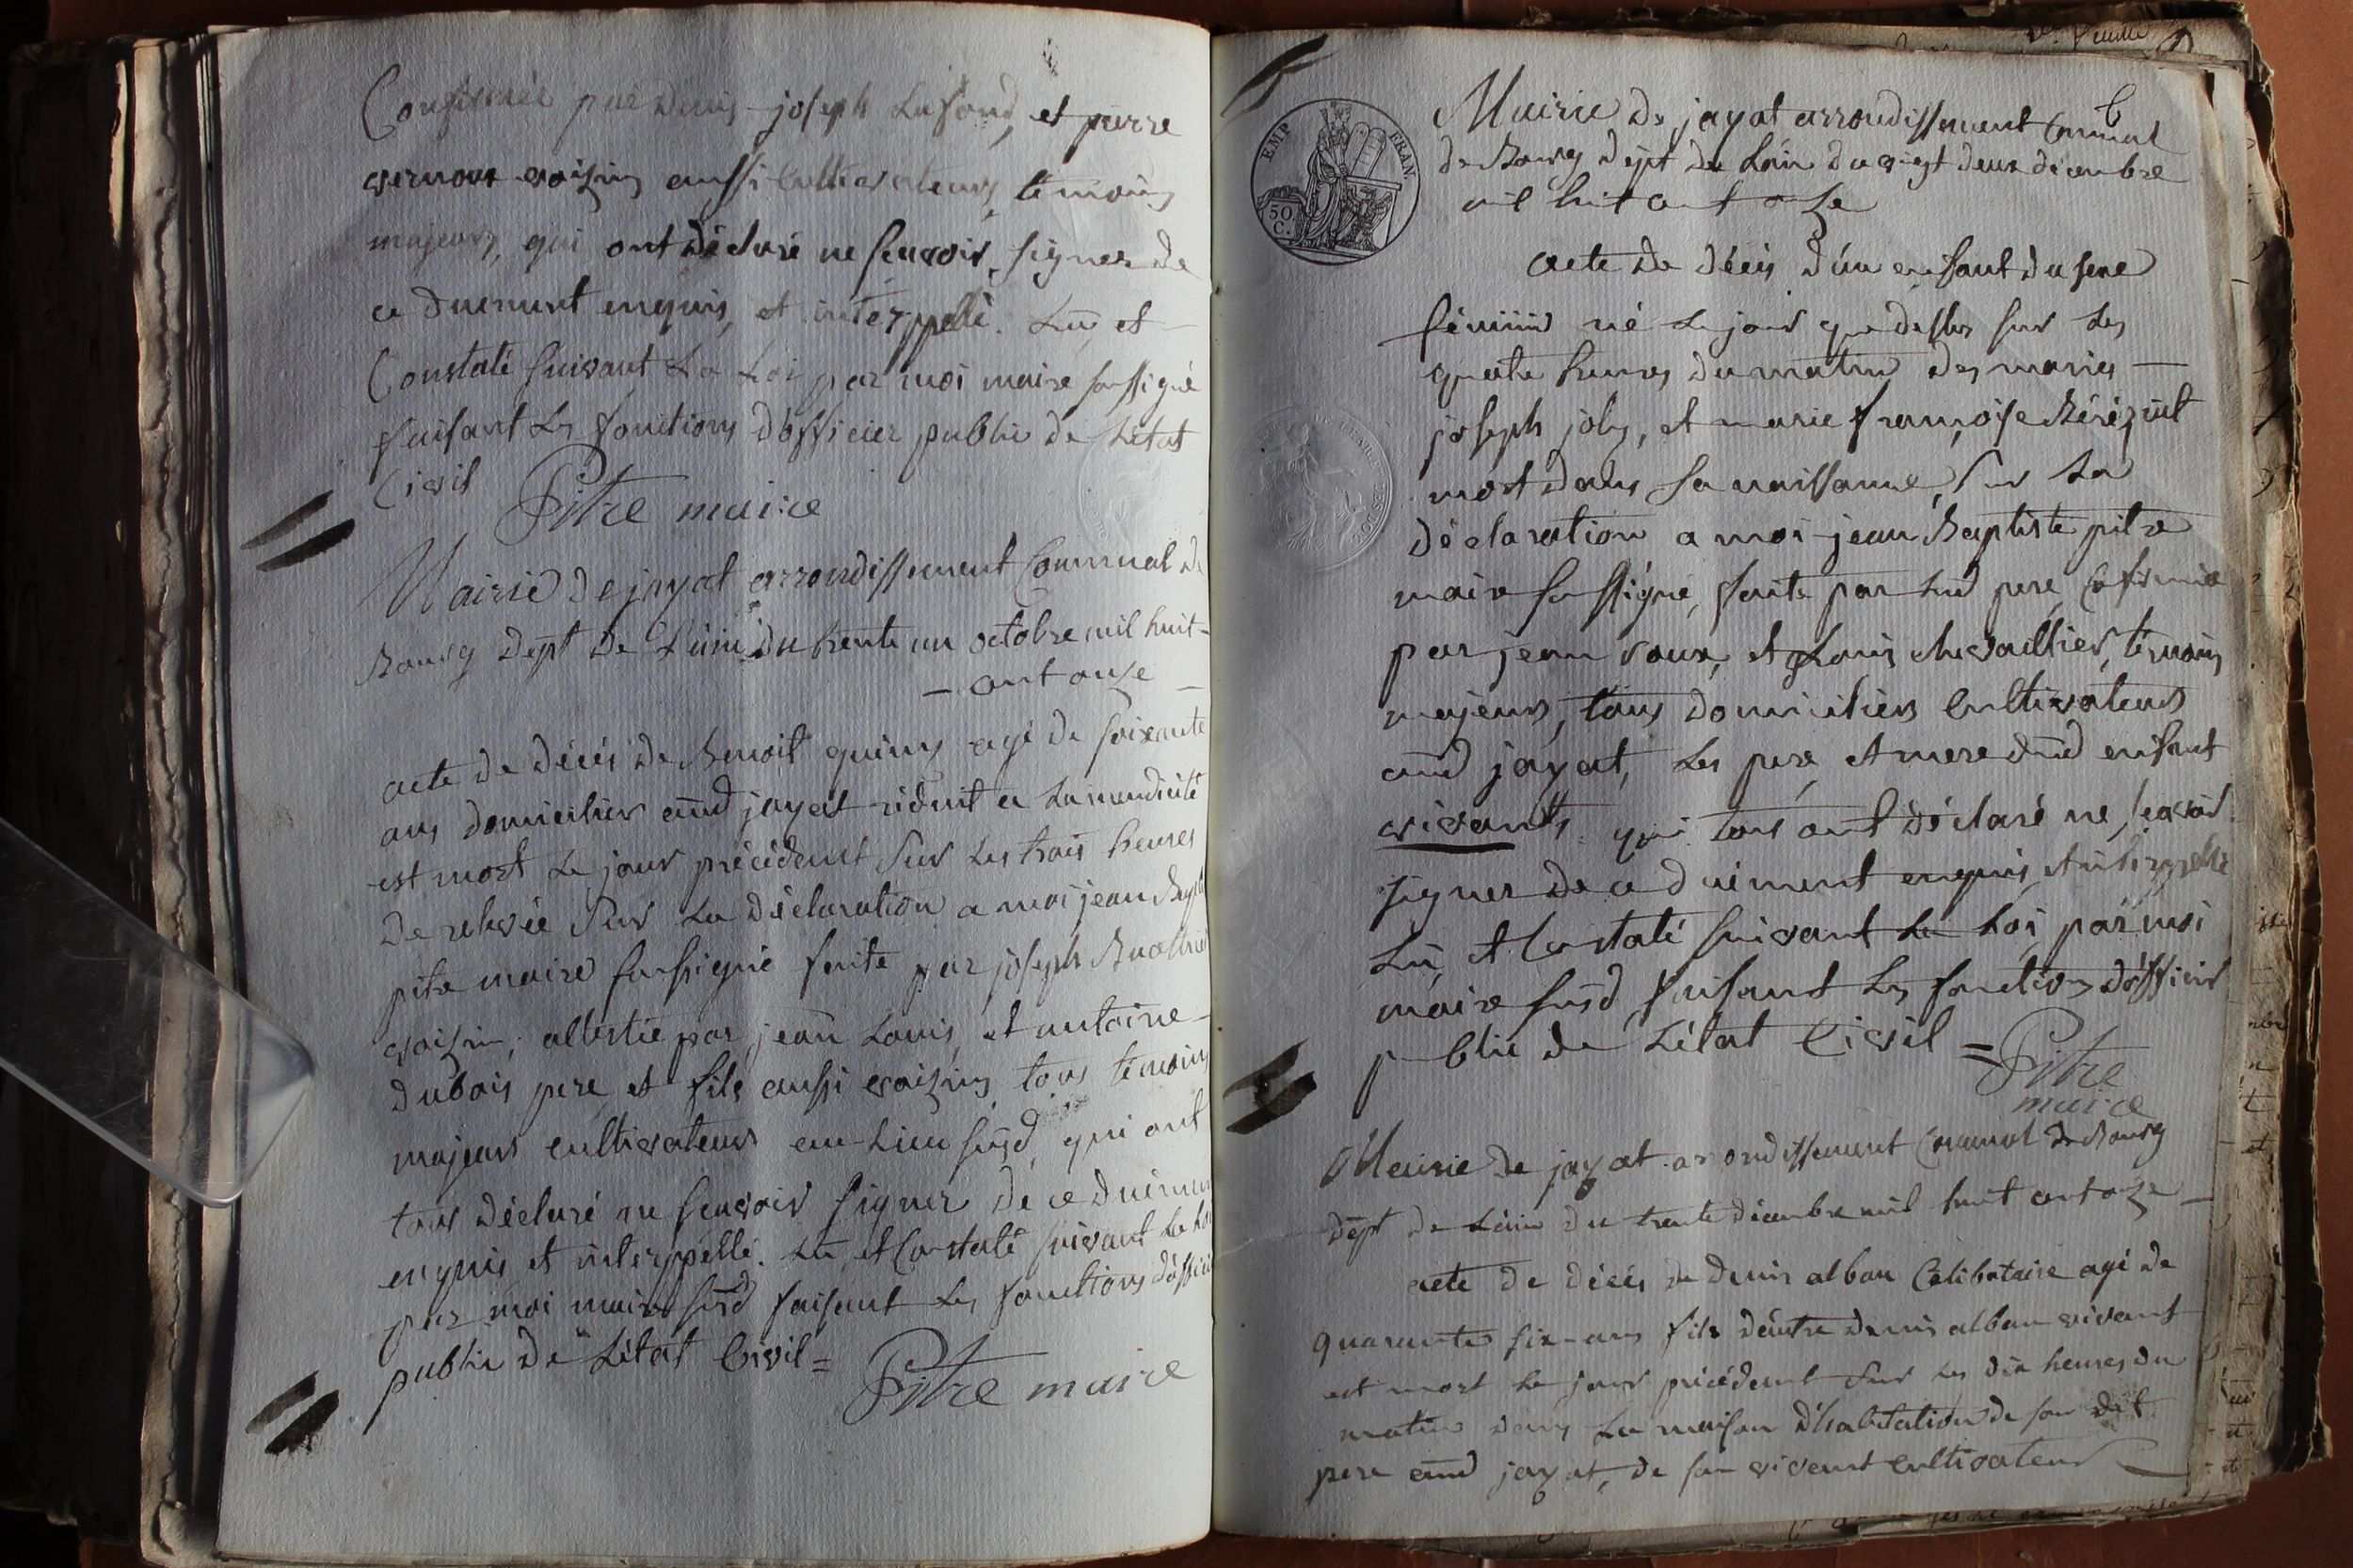 Confirmée par denis joseph Lafond, et pierre
vernoux voizins aussi cultivateurs, temoins
majeurs, qui ont déclaré ne scavoir signer de
ce duement enquis, et interppellé. Lu, et
Constaté suivant La Loi par moi maire soussigné
faisant Les fonctions d'officier public de L'état
Civil Pitre maire
Mairie de jayat arrondissement Communal de
Bourg dept de L'ain du trente un octobre mil huit
cent onze
acte de décés de Benoit quiny agé de soixante
ans domicilier aud jayat réduit a La mendicité
est mort Le jour précédent sur Les trois heures
de relevée sur La déclaration a moi jean Bapt
pitre maire soussigné faite par joseph
voizin, attestée par jean Louis, et antoine
dubois pere et fils aussi voizins tous temoins
majeurs cultivateurs au Lieu susd, qui ont
tous déclaré ne scavoir signer de ce duement
enquis et interppellé. Lu, et Constaté suivant La Loi
par moi maire susd faisant Les fonctions d'officier
public de L'état Civil = Pitre maire
EMP FRAN
50 C.
Mairie de jayat arrondissement Communal
de Bourg dept de L'ain du vingt deux décembre
mil huit cent onze
acte de décés d'un enfant du sexe
féminin né Le jour que dessus sur Les
quatre heures du matin des mariés
joseph joly, et marie françoise Béréziat
mort dans sa naissance, sur La
déclaration a moi jean Baptiste pitre
maire soussigné, faite par Led pere, Confirmée
par jean roux, et Louis chevaillier, témoins
majeurs, tous domiciliers cultivateurs
aud jayat, Les pere, et mere dud enfant
vivants qui tous ont déclaré ne scavoir
signer de ce duement enquis, et interppellé
Lu, et Constaté suivant La Loi par moi
maire susd faisant Les fonctions d'officier
public de L'état Civil = Pitre
maire
Mairie de jayat arrondissement Communal de Bourg
dept de L'ain du trente décembre mil huit cent onze
acte de décés de denis alban Célibataire agé de
quarante six ans fils d'autre denis alban vivant
est mort Le jour précédent sur Les dix heures du
matin dans La maison d'habitation de son dit
pere aud jayat, de son vivant cultivateur